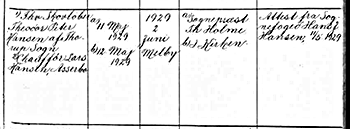 Theodor Peter
Hansen af Tho-
rup Sogn
2) Chauffør Lars
Hansen, Asserbo
a/11 Maj
1929
b/12 Maj
1929
1929
2
Juni
Melby
a) Sognepræst
Th Holme
b) I Kirken
Attest fra Sog-
nefoged Hans
Hansen, 11/5 1929